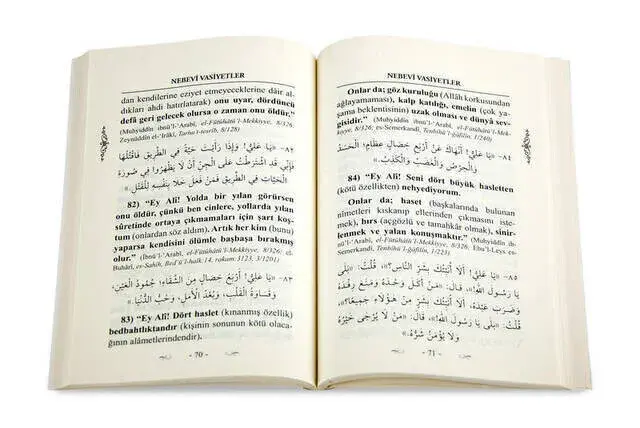 NEBEVÎ VASİYETLER
dan kendilerine eziyet etmeyeceklerine dâir al
dıkları ahdi hatırlatarak) onu uyar, dördüncü
defâ geri gelecek olursa o zaman onu öldür."
(Muhyiddîn ibnü'l-'Arabî, el-Fütûhâtü'l-Mekkiyye, 8/326;
Zeynüddîn el-'Irâkî, Tarhu't-tesrîb, 8/128)
٨٢- «يَا عَلِيُّ! وَإِذَا رَأَيْتَ حَيَّةً فِي الطَّرِيقِ فَاقْتُلْهَا
فَإِنِّي قَدِ اشْتَرَطْتُ عَلَى الْجِنِّ أَنْ لَا يَظْهَرُوا فِي صُورَةِ
الْحَيَّاتِ فِي الطَّرِيقِ فَمَنْ فَعَلَ خَلَّا بِنَفْسِهِ لِلْقَتْلِ.»
82) "Ey Ali! Yolda bir yılan görürsen
onu öldür, çünkü ben cinlere, yollarda yılan
sûretinde ortaya çıkmamaları için şart koş-
tum (onlardan söz aldım). Artık her kim (bunu)
yaparsa kendisini ölümle başbaşa bırakmış
olur." (İbnü'l-'Arabî, el-Fütûhâtü'l-Mekkiyye, 8/326; el-
Buhârî, es-Sahîh, Bed'ü'l-halk:14, rakam:3123, 3/1201)
٨٣- «يَا عَلِيُّ! أَرْبَعُ خِصَالٍ مِنَ الشَّقَاءِ: جُمُودُ الْعَيْنِ،
وَقَسَاوَةُ الْقَلْبِ، وَبُعْدُ الْأَمَلِ، وَحُبُّ الدُّنْيَا.»
83) "Ey Ali! Dört haslet (kınanmış özellik)
bedbahtlıktandır (kişinin sonunun kötü olaca-
ğının alâmetlerindendir).
- 70 -
NEBEVÎ VASİYETLER
Onlar da; göz kuruluğu (Allâh korkusundan
ağlayamaması), kalp katılığı, emelin (çok ya-
şama beklentisinin) uzak olması ve dünyâ sev-
gisidir." (Muhyiddîn ibnü'l-'Arabî, el-Fütûhâtü'l-Mek-
kiyye, 8/326; es-Semerkandî, Tenbîhü'l-ğâfilîn, 1/240)
٨٤- «يَا عَلِيُّ! أَنْهَاكَ عَنْ أَرْبَعِ خِصَالٍ عِظَامٍ، الْحَسَدِ
وَالْحِرْصِ وَالْغَضَبِ وَالْكَذِبِ.»
84) "Ey Ali! Seni dört büyük hasletten
(kötü özellikten) nehyediyorum.
Onlar da; haset (başkalarında bulunan
nîmetleri kıskanıp ellerinden çıkmasını iste-
mek), hırs (açgözlü ve tamahkâr olmak), sinir-
lenmek ve yalan konuşmaktır." (Muhyiddîn ib-
nü'l-'Arabî, el-Fütûhâtü'l-Mekkiyye, 8/326; Ebu'l-Leys es-
Semerkandî, Tenbîhü'l-ğâfilîn, 1/223)
٨٥- «يَا عَلِيُّ! أَلَا أُنَبِّئُكَ بِشَرِّ النَّاسِ؟»، قُلْتُ: «بَلَى
يَا رَسُولَ اللهِ!»، قَالَ: «مَنْ أَكَلَ وَحْدَهُ وَمَنَعَ رِفْدَهُ
وَضَرَبَ عَبْدَهُ، أَلَا أُنَبِّئُكَ بِشَرٍّ مِنْ هَؤُلَاءِ جَمِيعًا؟»،
قُلْتُ: «بَلَى يَا رَسُولَ اللهِ!»، قَالَ: «مَنْ لَا يُرْجَى خَيْرُهُ
وَلَا يُؤْمَنُ شَرُّهُ.»
- 71 -